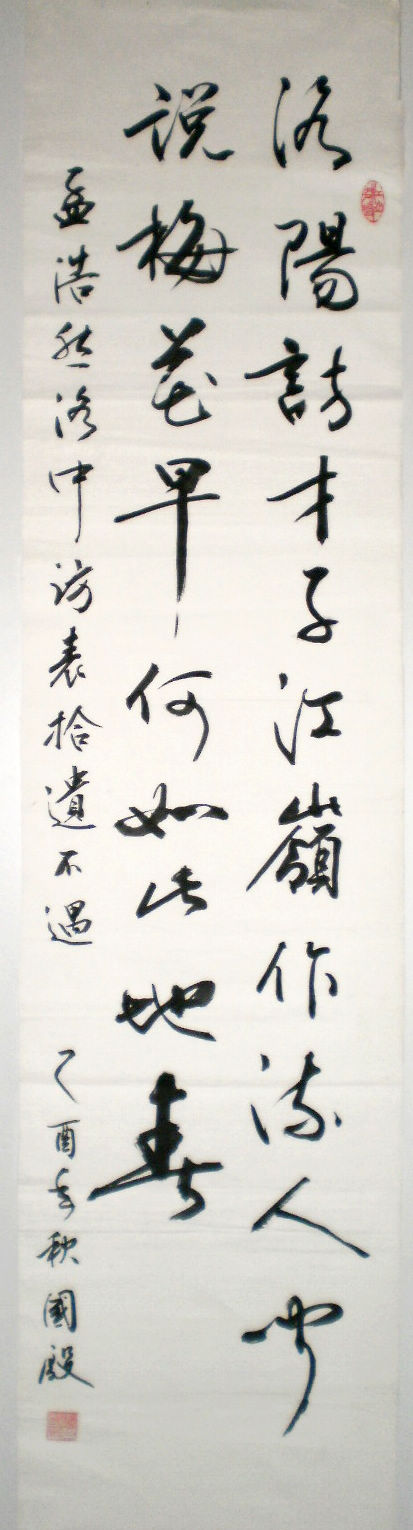 洛陽訪才子江嶺作流人聞
説梅花早何如此地春
孟浩然洛中访袁拾遺不遇
乙酉年秋國殿